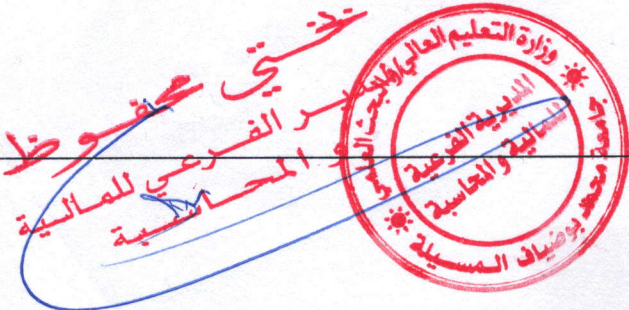 ختي محفوظ
المدير الفرعي للمالية
و المحاسبة
وزارة التعليم العالي والبحث العلمي
جامعة محمد بوضياف المسيلة
المديرية الفرعية
للمالية و المحاسبة